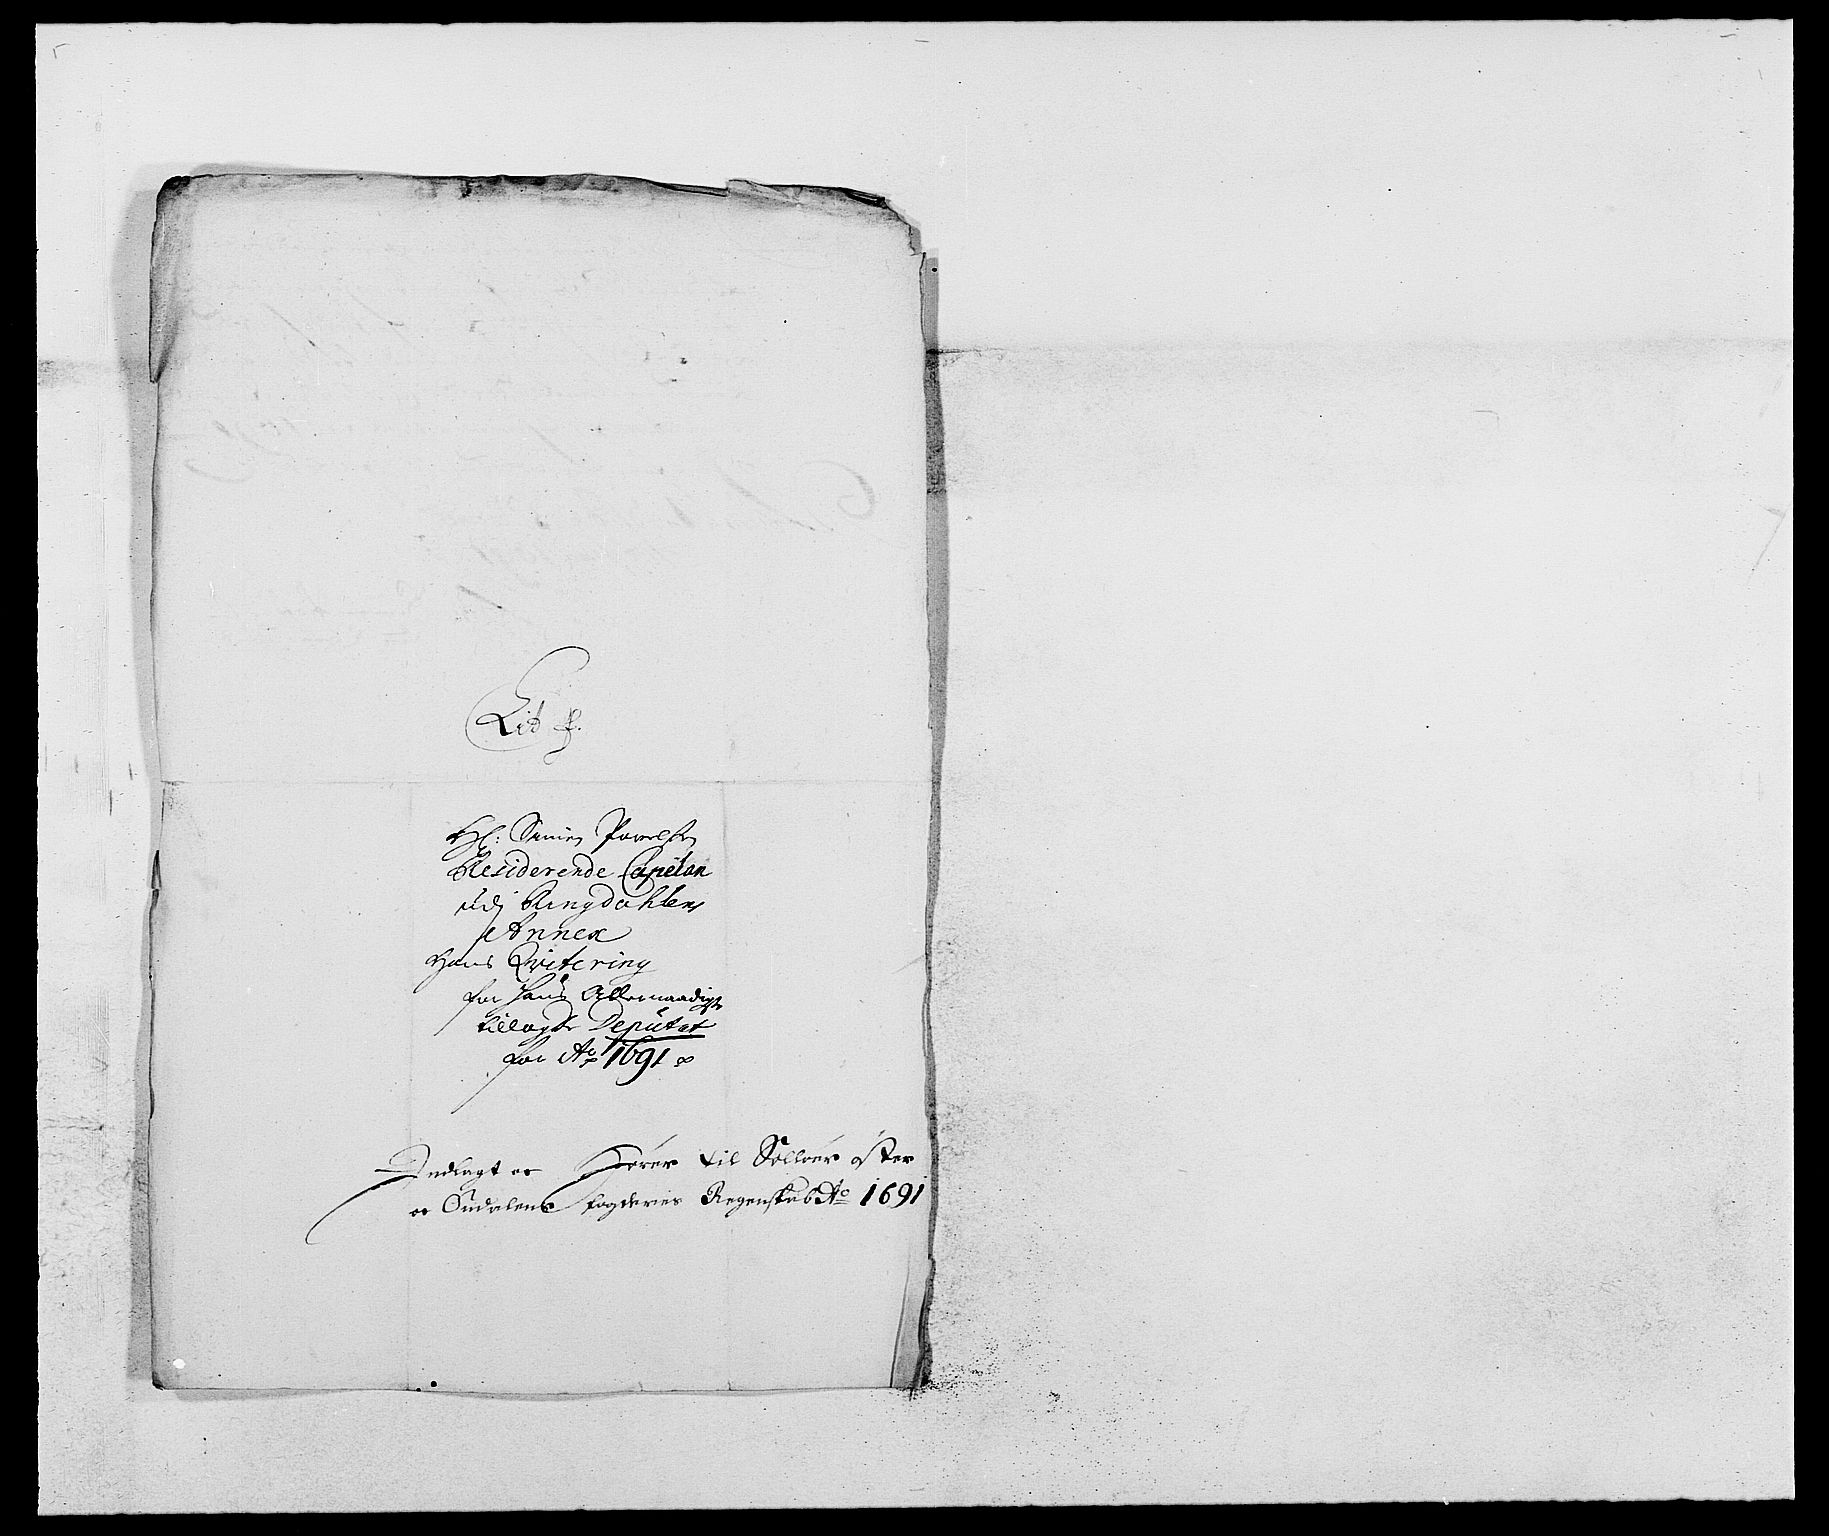 Lit F.
Hr: Simen Powelsen
Residerende Capelan
udj Ringdahlens
Annex
Hans Qvitering
for hans Allernaadigste
tillagde Deputat
for Ao 1691
Indlagt oc hører til Solløer Øster
oc Oudalens fogderies Regenskab Ao 1691